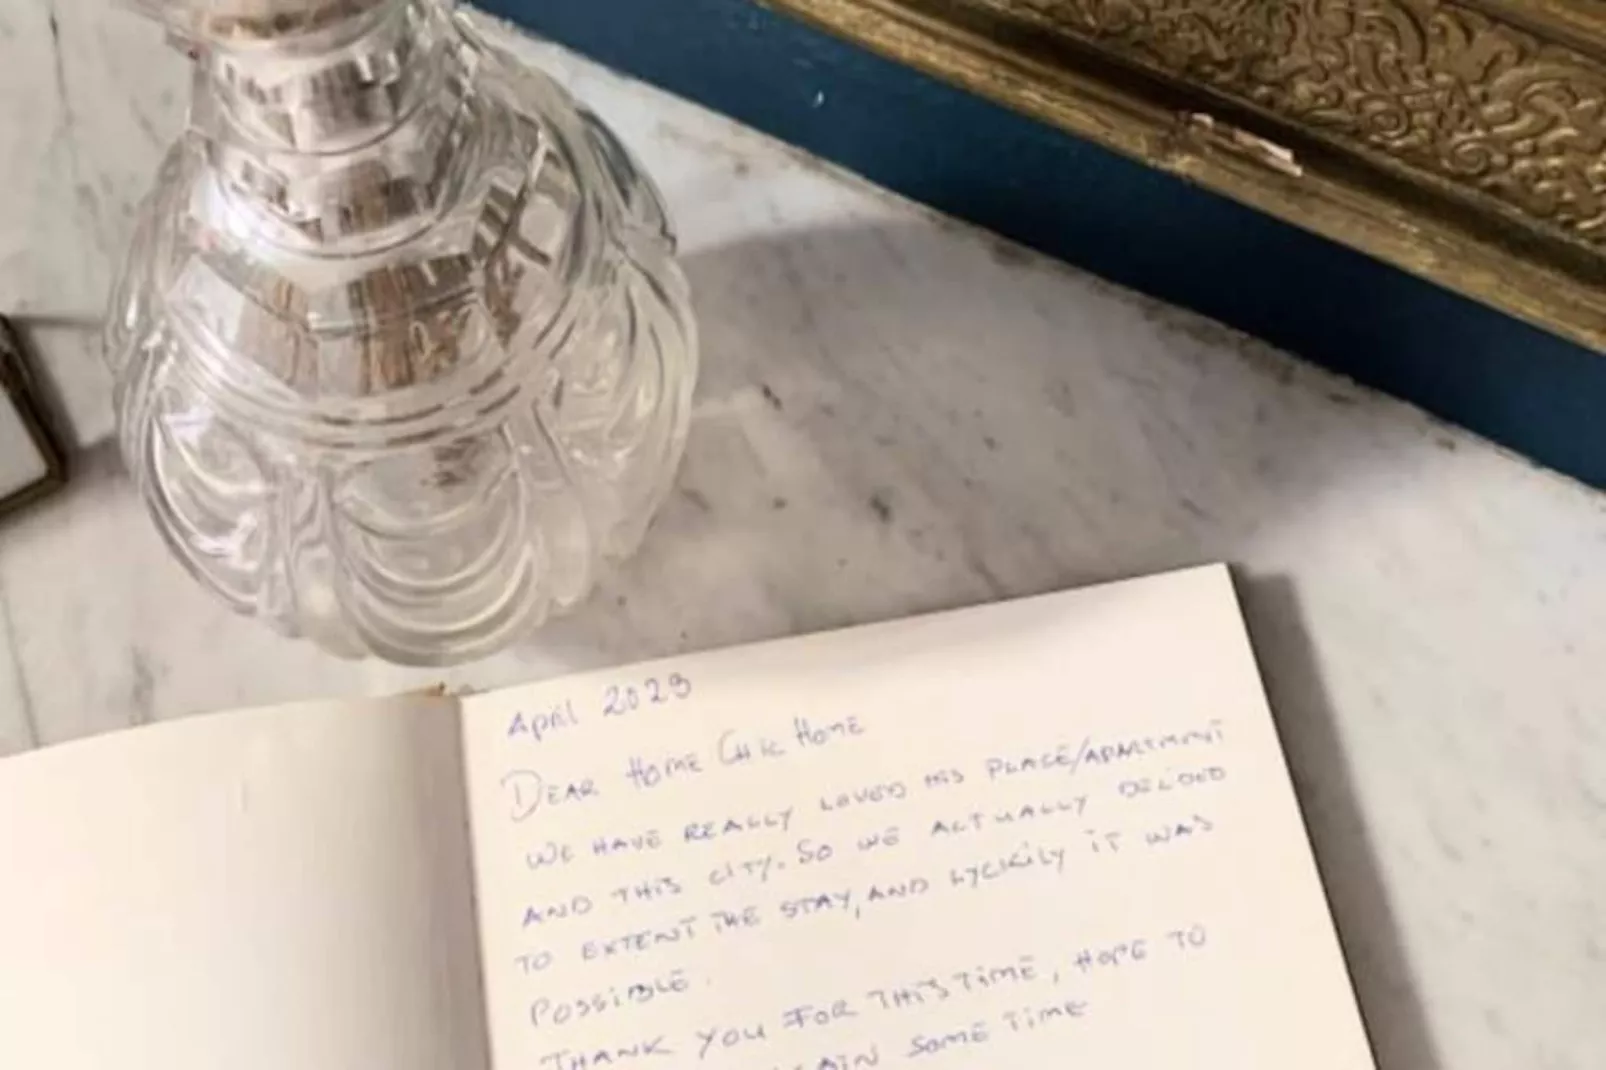 April 2023
DEAR HOME CHIC HOME
WE HAVE REALLY LOVED THIS PLACE/APARTMENT
AND THIS CITY. SO WE ACTUALLY DECIDED
TO EXTENT THE STAY, AND LYCKILY IT WAS
POSSIBLE.
THANK YOU FOR THIS TIME, HOPE TO
SOME TIME